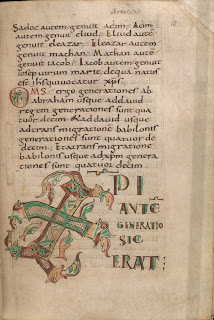 Sadoc autem genuit achim; Achim
autem genuit eliud; Eliud aute
genuit eleazar; Eleazar autem
genuit mathan; Mathan aute
genuit iacob; Iacob autem genuit
ioseph uirum marie, de qua natus
est ihs qui uocatur xps;
OMS ergo generationes ab
abraham usque ad dauid
regem, generationes sunt qua
tuor decim; Et a dauid usque
ad transmigratione babilonis
generationes sunt quatuor de
cim; Et a transmigratione
babilonis usque ad xpm genera
tiones sunt quatuor decim
XPI
AUTE
GENERATIO
SIC
ERAT;